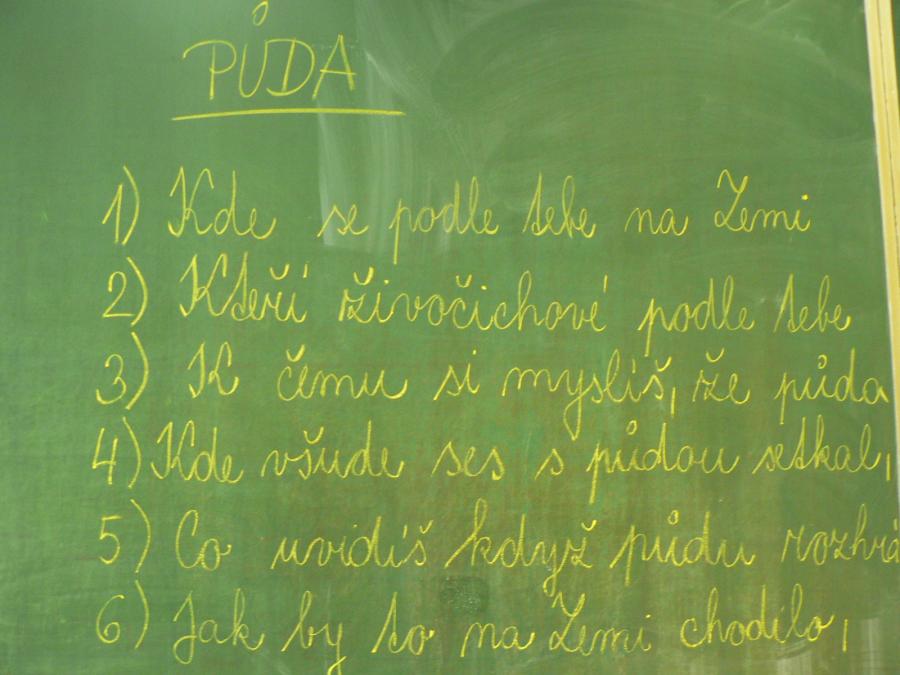 PŮDA
1) Kde se podle tebe na Zemi
2) Kteří živočichové podle tebe
3) K čemu si myslíš, že půda
4) Kde všude ses s půdou setkal,
5) Co uvidíš když půdu rozhrá
6) Jak by to na Zemi chodilo,